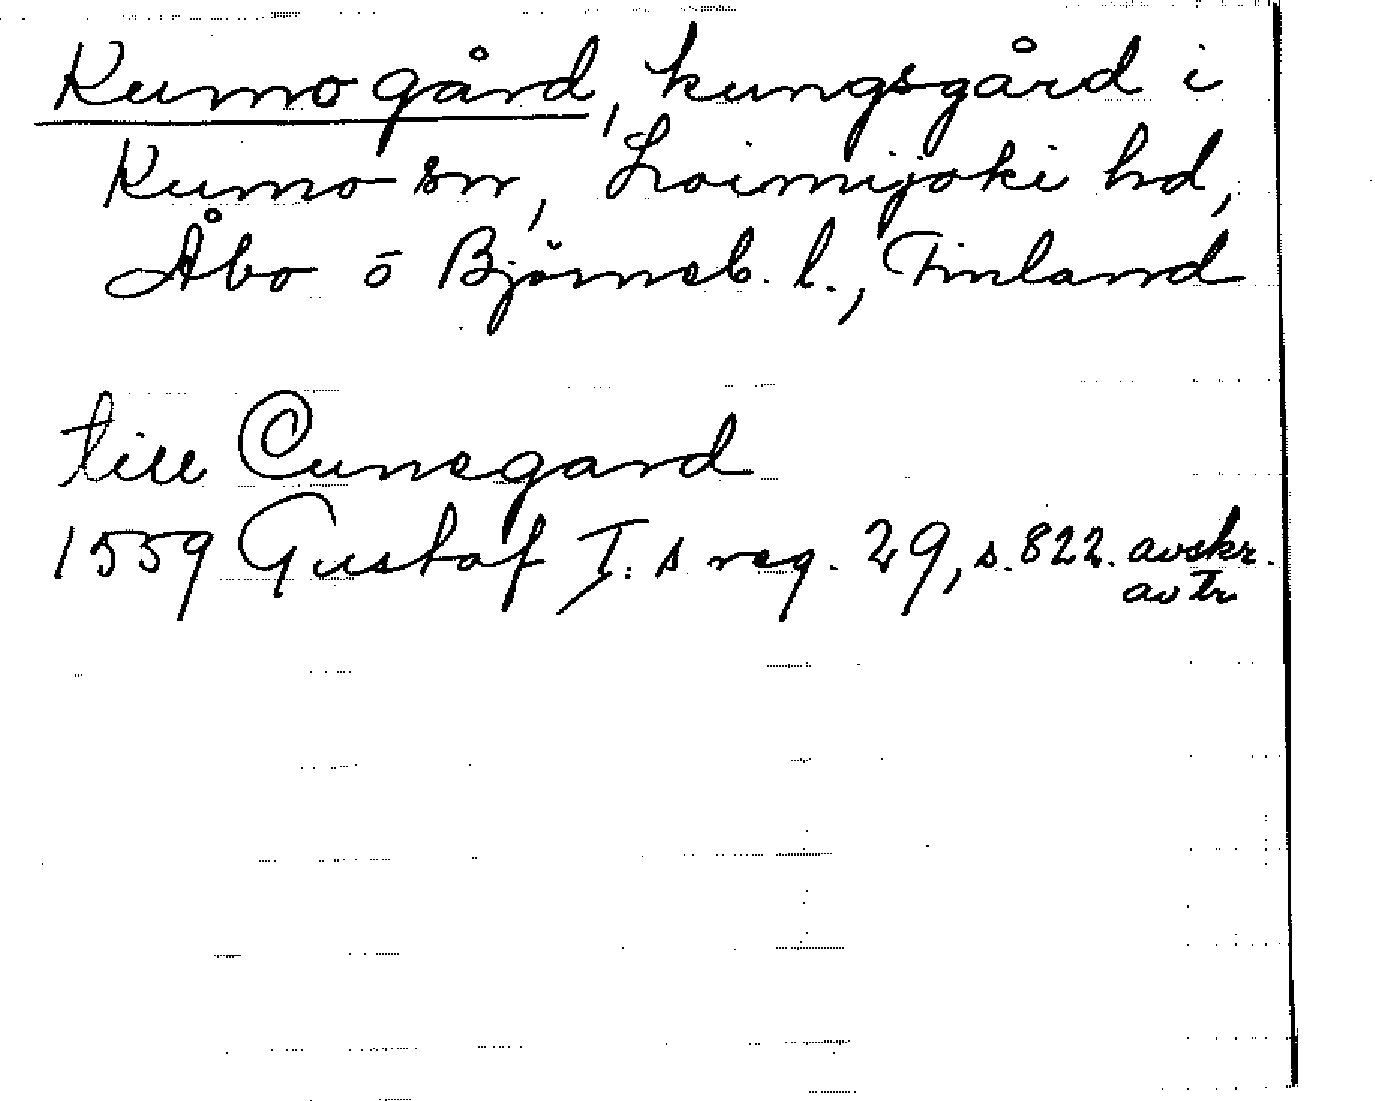 Kumo gård, kungsgård i
Kumo sn, Loimijoki hd,
Åbo o Björneb. l., Finland
till Cunegard
1559 Gustaf I:s reg. 29, s. 822. avskr.
av tr